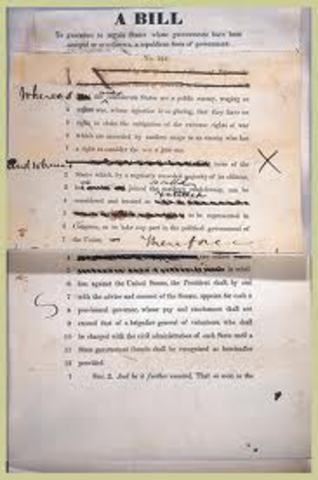 A BILL
To guarantee to certain States whose governments have been
usurped or overthrown, a republican form of government.
Whereas the so-called Confederate States are a public enemy, waging an
unjust war, whose injustice is so glaring, that they have no
right to claim the mitigation of the extreme rights of war
which are accorded by modern usage to an enemy who has
a right to consider the war a just one.
And whereas none of the
States which, by a regularly recorded majority of its citizens,
joined the Southern Confederacy, can be
considered and treated as
to be represented in
Congress, or to take any part in the political government of
the Union. Therefore
in rebel-
lion against the United States, the President shall, by and
with the advice and consent of the Senate, appoint for each a
provisional governor, whose pay and emoluments shall not
exceed that of a brigadier general of volunteers, who shall
be charged with the civil administration of such State until a
State government therein shall be recognized as hereinafter
provided.
Sec. 2. And be it further enacted, That so soon as the